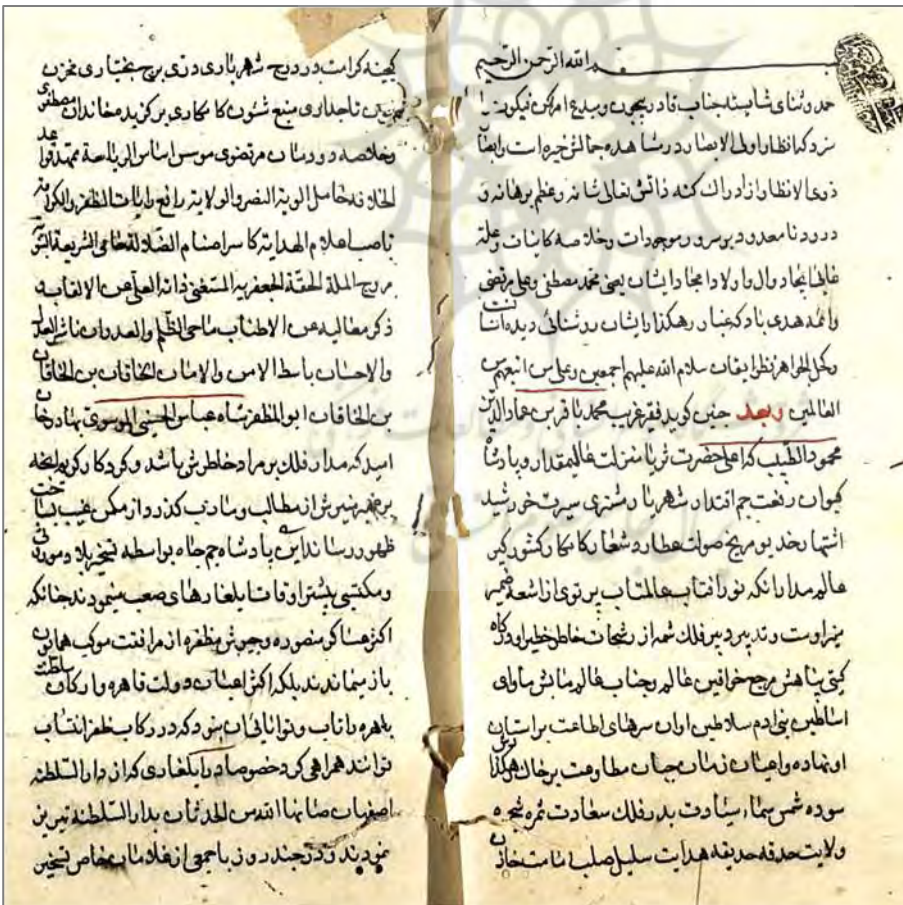 بسم الله الرحمن الرحیم
حمد و ثنای شایسته جناب قادر بیچون و مبدع امر کن فیکون را
سزد که انظار اولی الابصار در مشاهده جمالش خیره است و ابصار
ذوی الانظار از ادراک کنه ذاتش تعالی شانه و عظم برهانه و
درود نامعدود بر سرور موجودات و خلاصه کاینات و علة
غایی ایجاد و ال و اولاد امجاد ایشان یعنی محمد مصطفی و علی مرتضی
و ائمه هدی باد که غبار رهکذار ایشان روشنائی دیده انسانست
و کحل الجواهر نظر ایقان سلام الله علیهم اجمعین و علی من اتبعهم
العالمین و بعد جنین کوید فقیر غریب محمد باقر بن عماد الدین
محمود الطبیب که اعلی حضرت ثریا منزلت عالیمقدار و پادشاه
کیوان رفعت جم اقتدار شهریار مشتری سیرت خورشید
اشتهار خدیو مریخ صولت عطارد شعار کامکار کشور گیر
عالم مدار انکه نور افتاب عالمتاب پرتوی از اشعه ضمیر
منیر اوست و تدبیر دبیر فلک شمه از رشحات خاطر خطیر او درکاه
کیتی پناهش مرجع خواقین عالم و جناب عالم مابش ماوای
اساطین بنی ادم سلاطین اوان سرهای اطاعت بر استان
او نهاده و اعیان زمان جباه مطاوعت بر خاک رهکذرش
سوده شمس سماء سیادت بدر فلک سعادت ثمره شجره
ولایت حدقه حدیقه هدایت سلیل صلب امامت خازن
کنجینه کرامت در درج شهریاری دری برج بختیاری مخزن
تاجداری منبع شئون کامکاری برکزیده خاندان مصطفوی
و خلاصه دودمان مرتضوی موسس اساس الریاسة ممهد قواعد
الخلافه حامل الویة النصر و الولایة رافع رایات الظفر و الکرامة
ناصب اعلام الهدایة کاسر اصنام الضلالة حامی الشریعة النبویه
مروج الملة الحقة الجعفریه المستغنی ذاته العلی عن الالقاب و
ذکر معالیه عن الاطناب ماحی الظلم و العدوان ناشر العدل
و الاحسان باسط الامن و الامان الخاقان بن الخاقان
بن الخاقان ابو المظفر شاه عباس الحسینی الموسوی بهادر خان
امید که مدار فلک بر مراد خاطرش باشد و کرد کار کریم انچه
بر ضمیر منیرش از مطالب و مارب کذرد از مکمن غیب بساحت
ظهور رساند این پادشاه جم جاه بواسطه تسخیر بلاد موروثی
و مکتسبی بیشتر اوقات ایلغارهای صعب مینمودند جنانکه
اکثر عساکر منصوره و جیوش مظفره از مرافقت موکب همایون
باز میماندند بلکه اکثر اعیان دولت قاهره و ارکان سلطنت
باهره را تاب و توانایی ان نبود که در رکاب ظفر انتساب
توانند همراهی کرد خصوصا در ایلغاری که از دار السلطنه
اصفهان صانها الله من الحدثان بدار السلطنه تبریز
نمودند و در چند روز با جمعی از غلامان خاص تسخیر